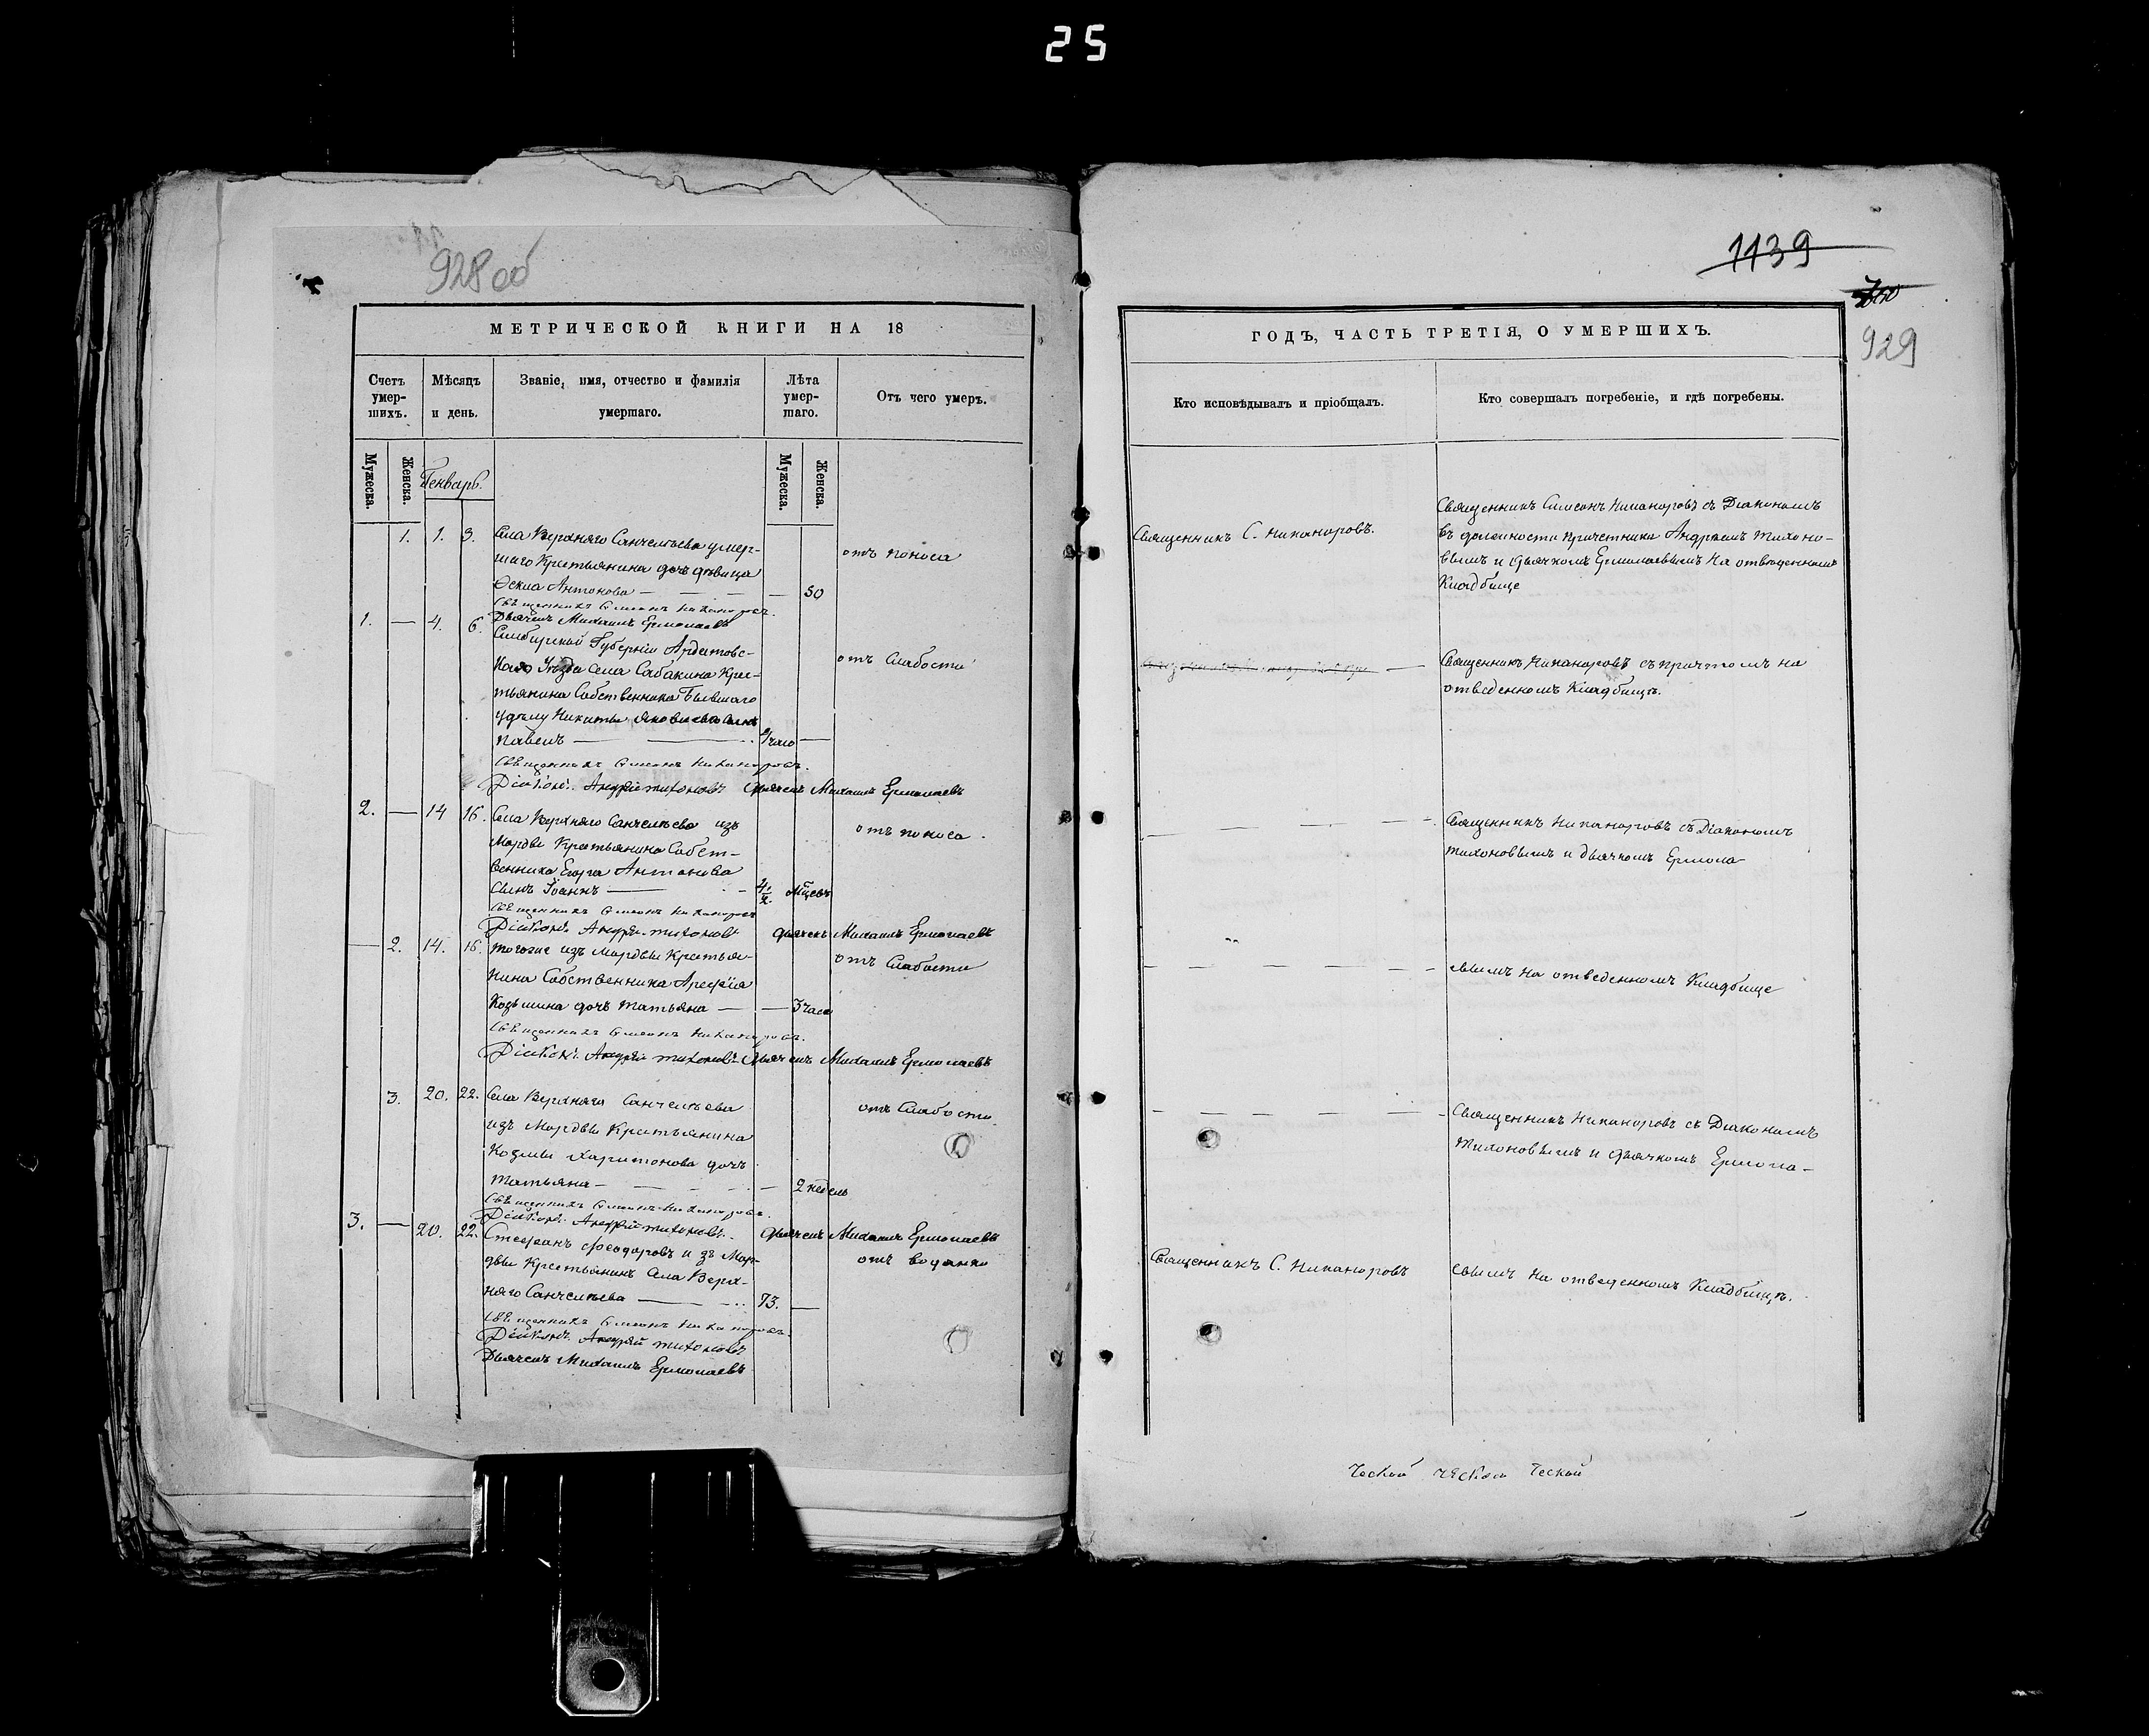 25
928 об
МЕТРИЧЕСКОЙ КНИГИ НА 18
Счетъ умер-шихъ.
Мѣсяцъ и день.
Званіе, имя, отчество и фамилія умершаго.
Лѣта умер-шаго.
Отъ чего умеръ.
Мужеска.
Женска.
Генварь.
Мужеска.
Женска.
1. 1. 3. Села Верхняго Санчелѣева умер-
шаго Крестьянина дочь дѣвица
отъ поноса
Антонова — — — — 50
Священникъ Симеонъ Никаноровъ.
Дьячекъ Михаилъ Ермолаевъ
1. — 4. 6. Симбирской Губерніи Ардатовс-
каго Уѣзда Села Сабакина Крес-
отъ Слабости
тьянина Собственника бывшаго
удѣлу Никиты Яковлева сынъ
Павелъ — —
Священникъ Симеонъ Никаноровъ.
Діаконъ Андрей Тихоновъ Дьячекъ Михаилъ Ермолаевъ
2. — 14 16. Села Верхняго Санчелѣева изъ
отъ поноса.
Мордвы Крестьянина Собст-
венника Егора Антонова
Сынъ Іоаннъ —
Священникъ Симеонъ Никаноровъ
Діаконъ Андрей Тихоновъ Дьячекъ Михаилъ Ермолаевъ
— 2. 14. 16. тогоже изъ Мордвы Крестья-
отъ Слабости
нина Собственника Арефія
Козьмина дочь Татьяна — — 3 часа
Священникъ Симеонъ Никаноровъ.
Діаконъ Андрей Тихоновъ Дьячекъ Михаилъ Ермолаевъ
3. 20. 22. Села Верхняго Санчелѣева
отъ Слабости.
изъ Мордвы Крестьянина
Козьмы Харитонова дочь
Татьяна — — — 2 недель
Священникъ Симеонъ Никаноровъ.
Діаконъ Андрей Тихоновъ. Дьячекъ Михаилъ Ермолаевъ
3. — 20. 22. Стефанъ Феодоровъ изъ Мор-
отъ водянки
двы Крестьянинъ Села Верх-
няго Санчелѣева — 73. —
Священникъ Симеонъ Никаноровъ.
Діаконъ Андрей Тихоновъ
Дьячекъ Михаилъ Ермолаевъ
1139
929
ГОДЪ, ЧАСТЬ ТРЕТІЯ, О УМЕРШИХЪ.
Кто исповѣдывалъ и пріобщалъ.
Кто совершалъ погребеніе, и гдѣ погребены.
Священникъ С. Никаноровъ.
Священникъ Симеонъ Никаноровъ съ Діакономъ
въ должности причетника Андреемъ Тихоно-
вымъ и Дьячкомъ Ермолаевымъ На отведенномъ
Кладбище
Священникъ Никаноровъ съ причтомъ на
отведенномъ Кладбищѣ.
Священникъ Никаноровъ съ Діакономъ
Тихоновымъ и Дьячкомъ Ермола-
евымъ на отведенномъ Кладбище
Священникъ Никаноровъ съ Діакономъ
Тихоновымъ и Дьячкомъ Ермола-
Священникъ С. Никаноровъ
евымъ На отведенномъ Кладбищѣ.
ческой ческой ческой